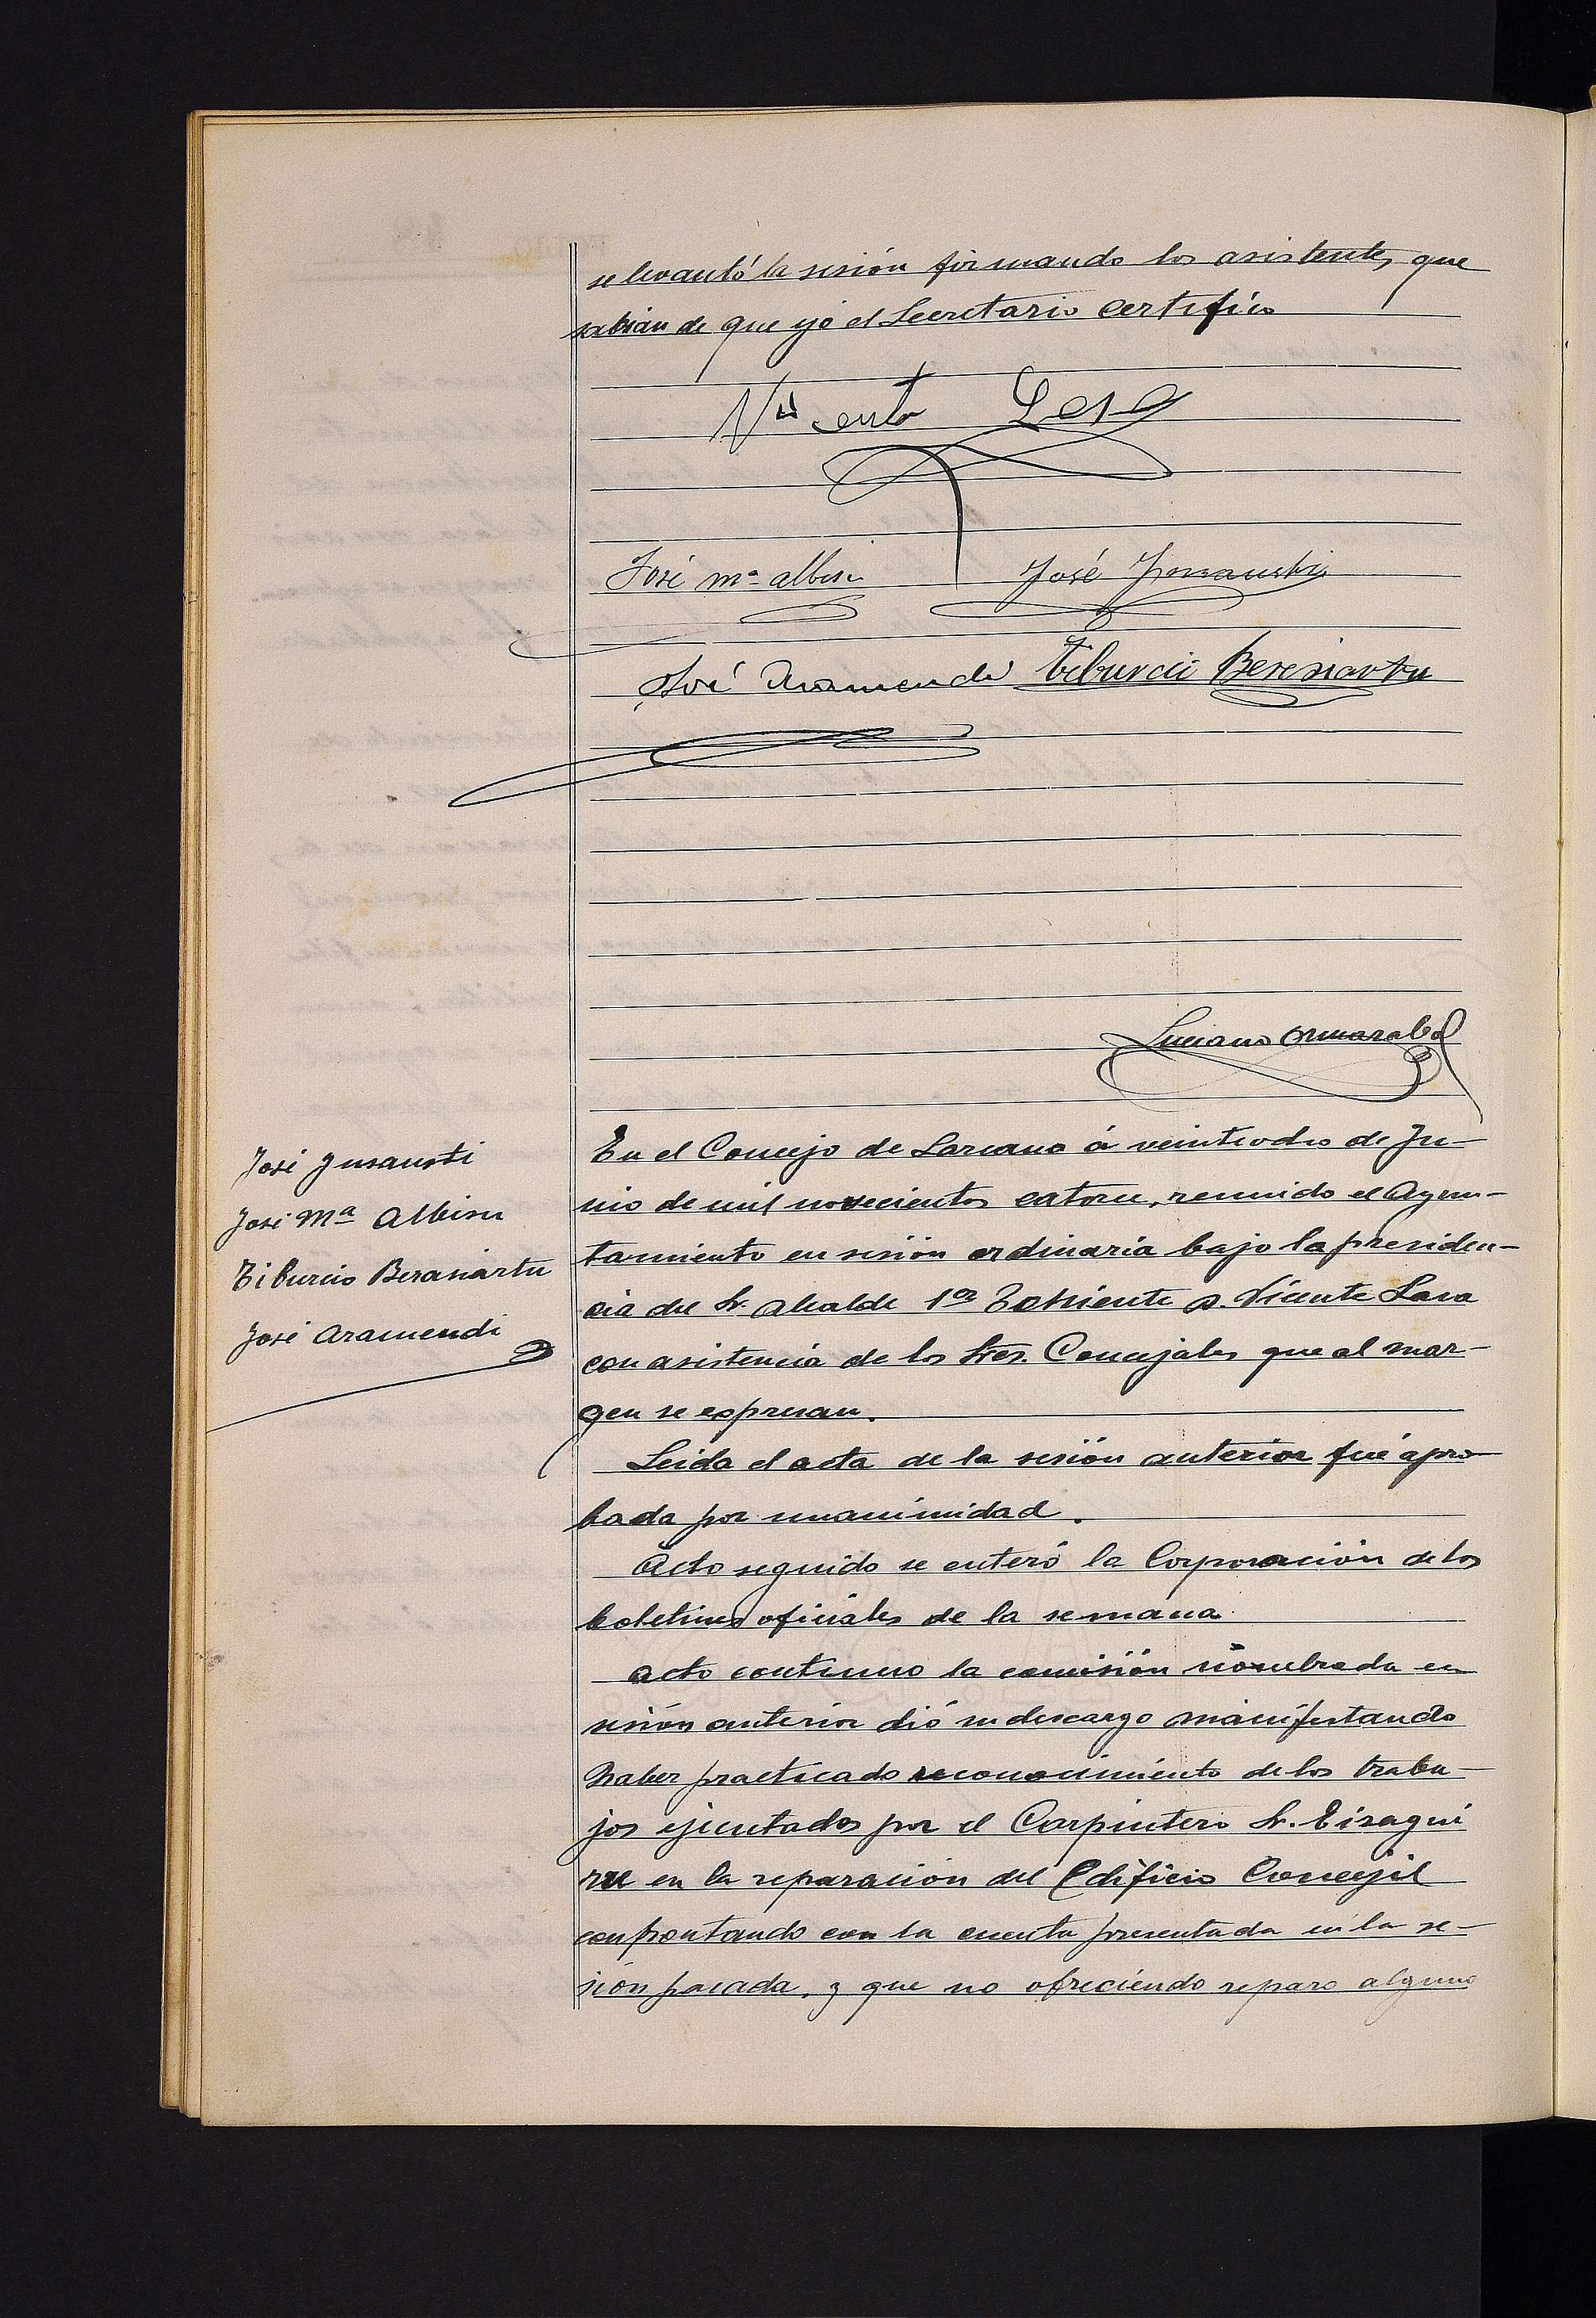 se levantó la sesión firmando los asistentes, que
sabian de que yó el Secretario certifico
José Mª Albisu José Insausti
José Aramendi Tiburcio Beresiartu
Luciano Ormazabal
José Insausti
José Mª Albisu
Tiburcio Berasiartu
José Aramendi
En el Concejo de Lazcano á veintiodos de Ju-
nio de mil novecientos catorce, reunido el Ayun-
tamiento en sesión ordinaria bajo la presiden-
cia del Sr. Alcalde 1er Teniente D. Vicente Lasa
con asistencia de los Sres. Concejales que al mar-
gen se expresan.
Leida el acta de la sesión anterior fué apro-
bada por unanimidad.
Acto seguido se enteró la Corporación de los
boletines oficiales de la semana
Acto continuo la comisión nombrada en
sesión anterior dió su descargo manifestando
haber practicado reconocimiento de los traba-
jos ejecutados por el Carpintero Sr. Eizagui
rre en la reparación del Edificio Concejil
confrontando con la cuenta presentada en la se-
sión pasada, y que no ofreciendo reparo alguno